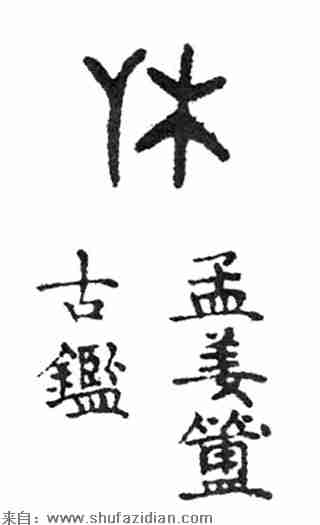 休
孟姜簠
古鑑
来自：www.shufazidian.com